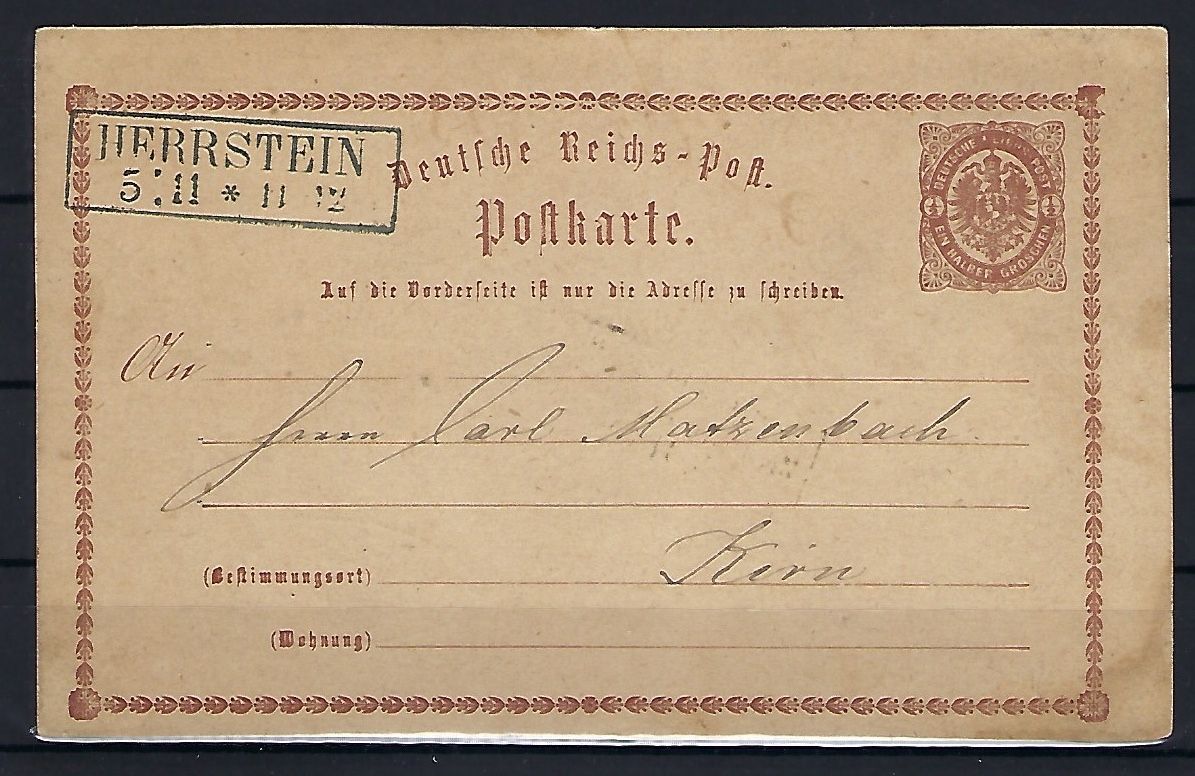 HERRSTEIN
5 11 * 11 12
Deutsche Reichs-Post.
Postkarte.
DEUTSCHE REICHS POST
½ ½
EIN HALBER GROSCHEN
Auf die Vorderseite ist nur die Adresse zu schreiben.
An
Herrn Carl Matzenbach
Kirn
(Bestimmungsort)
(Wohnung)